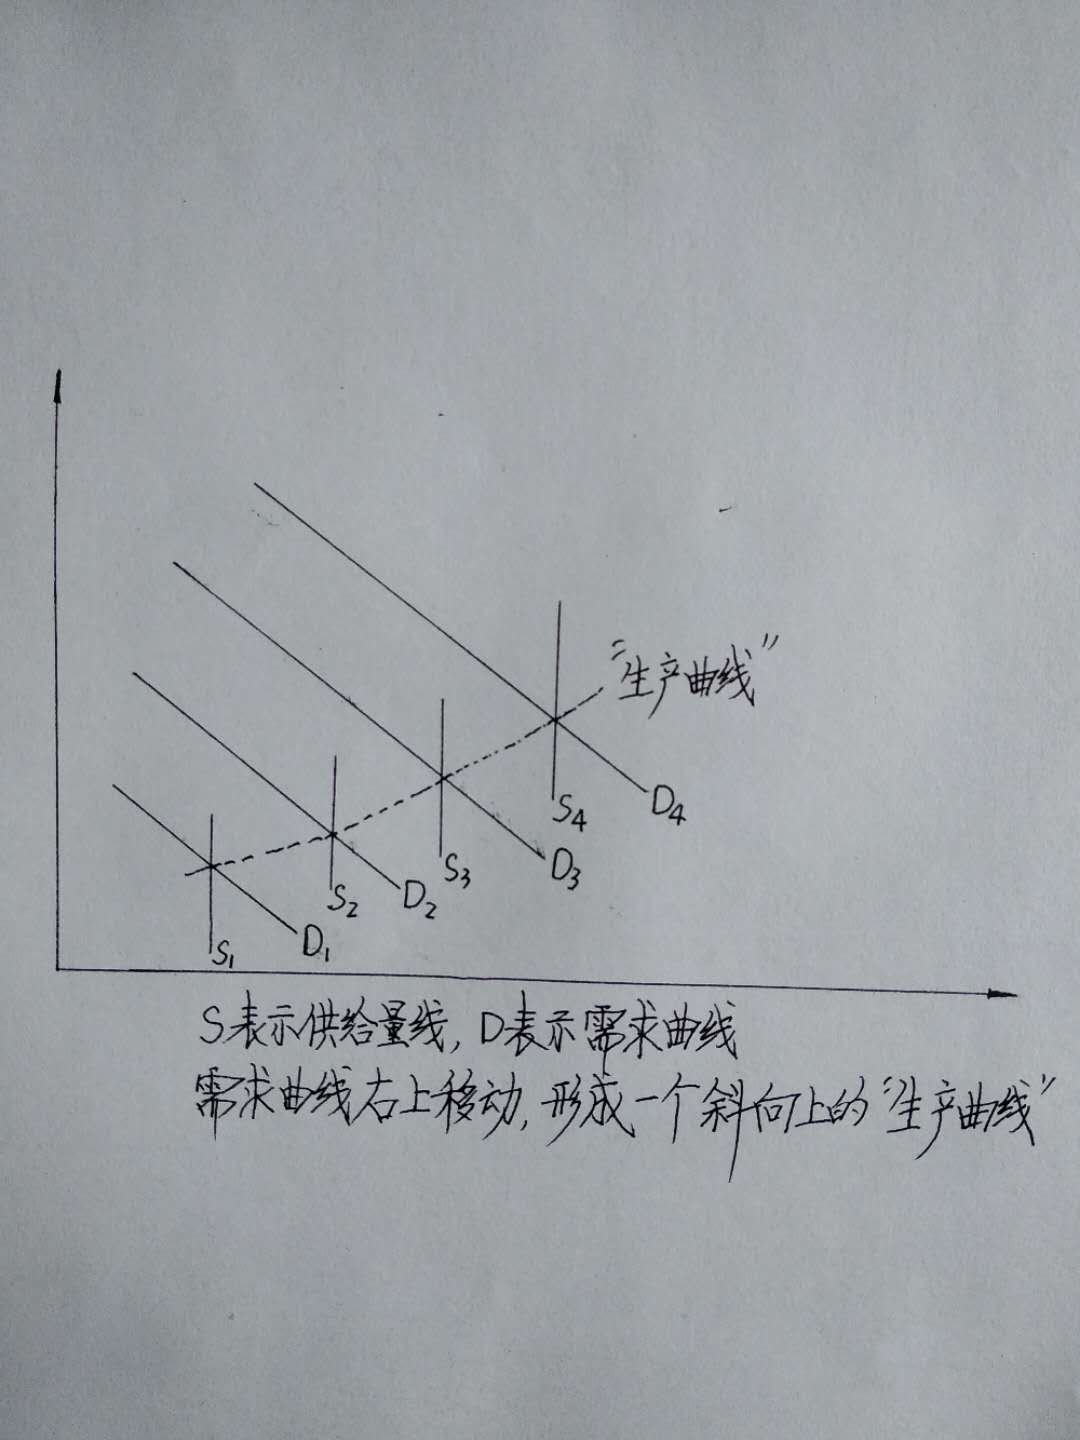 “生产曲线”
S₄
D₄
S₃
D₃
S₂
D₂
S₁
D₁
S表示供给量线,D表示需求曲线
需求曲线右上移动,形成一个斜向上的“生产曲线”